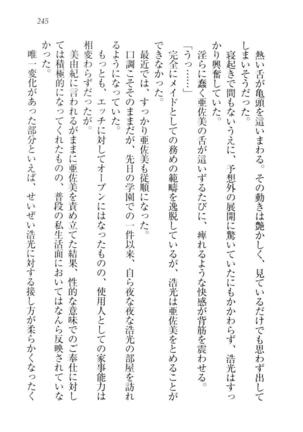 245
熱い舌が亀頭を這いまわる。その動きは艶めかしく、見ているだけでも思わず出して
しまいそうだった。
寝起きで間もないうえに、予想外の展開に驚いていたにもかかわらず、浩光はすっ
かり興奮していた。
淫らに蠢く亜佐美の舌が這いずるたびに、痺れるような快感が背筋を震わせる。
「うっ……」
完全にメイドとしての務めの範疇を逸脱しているが、浩光は亜佐美をとめることが
できなかった。
最近では、すっかり亜佐美も従順になった。
口調こそそのままだが、先日の学園での一件以来、自ら夜な夜な浩光の部屋を訪れ
るようになっていた。
もっとも、エッチに対してオープンになったものの、使用人としての家事能力は
相変わらずだったが。
美由紀に言われるがままに亜佐美を責め立てた結果、性的な意味でのご奉仕に対し
ては積極的になってくれたものの、普段の私生活面においてはなんら反映されていな
かった。
唯一変化があった部分といえば、せいぜい浩光に対する接し方が柔らかくなったく